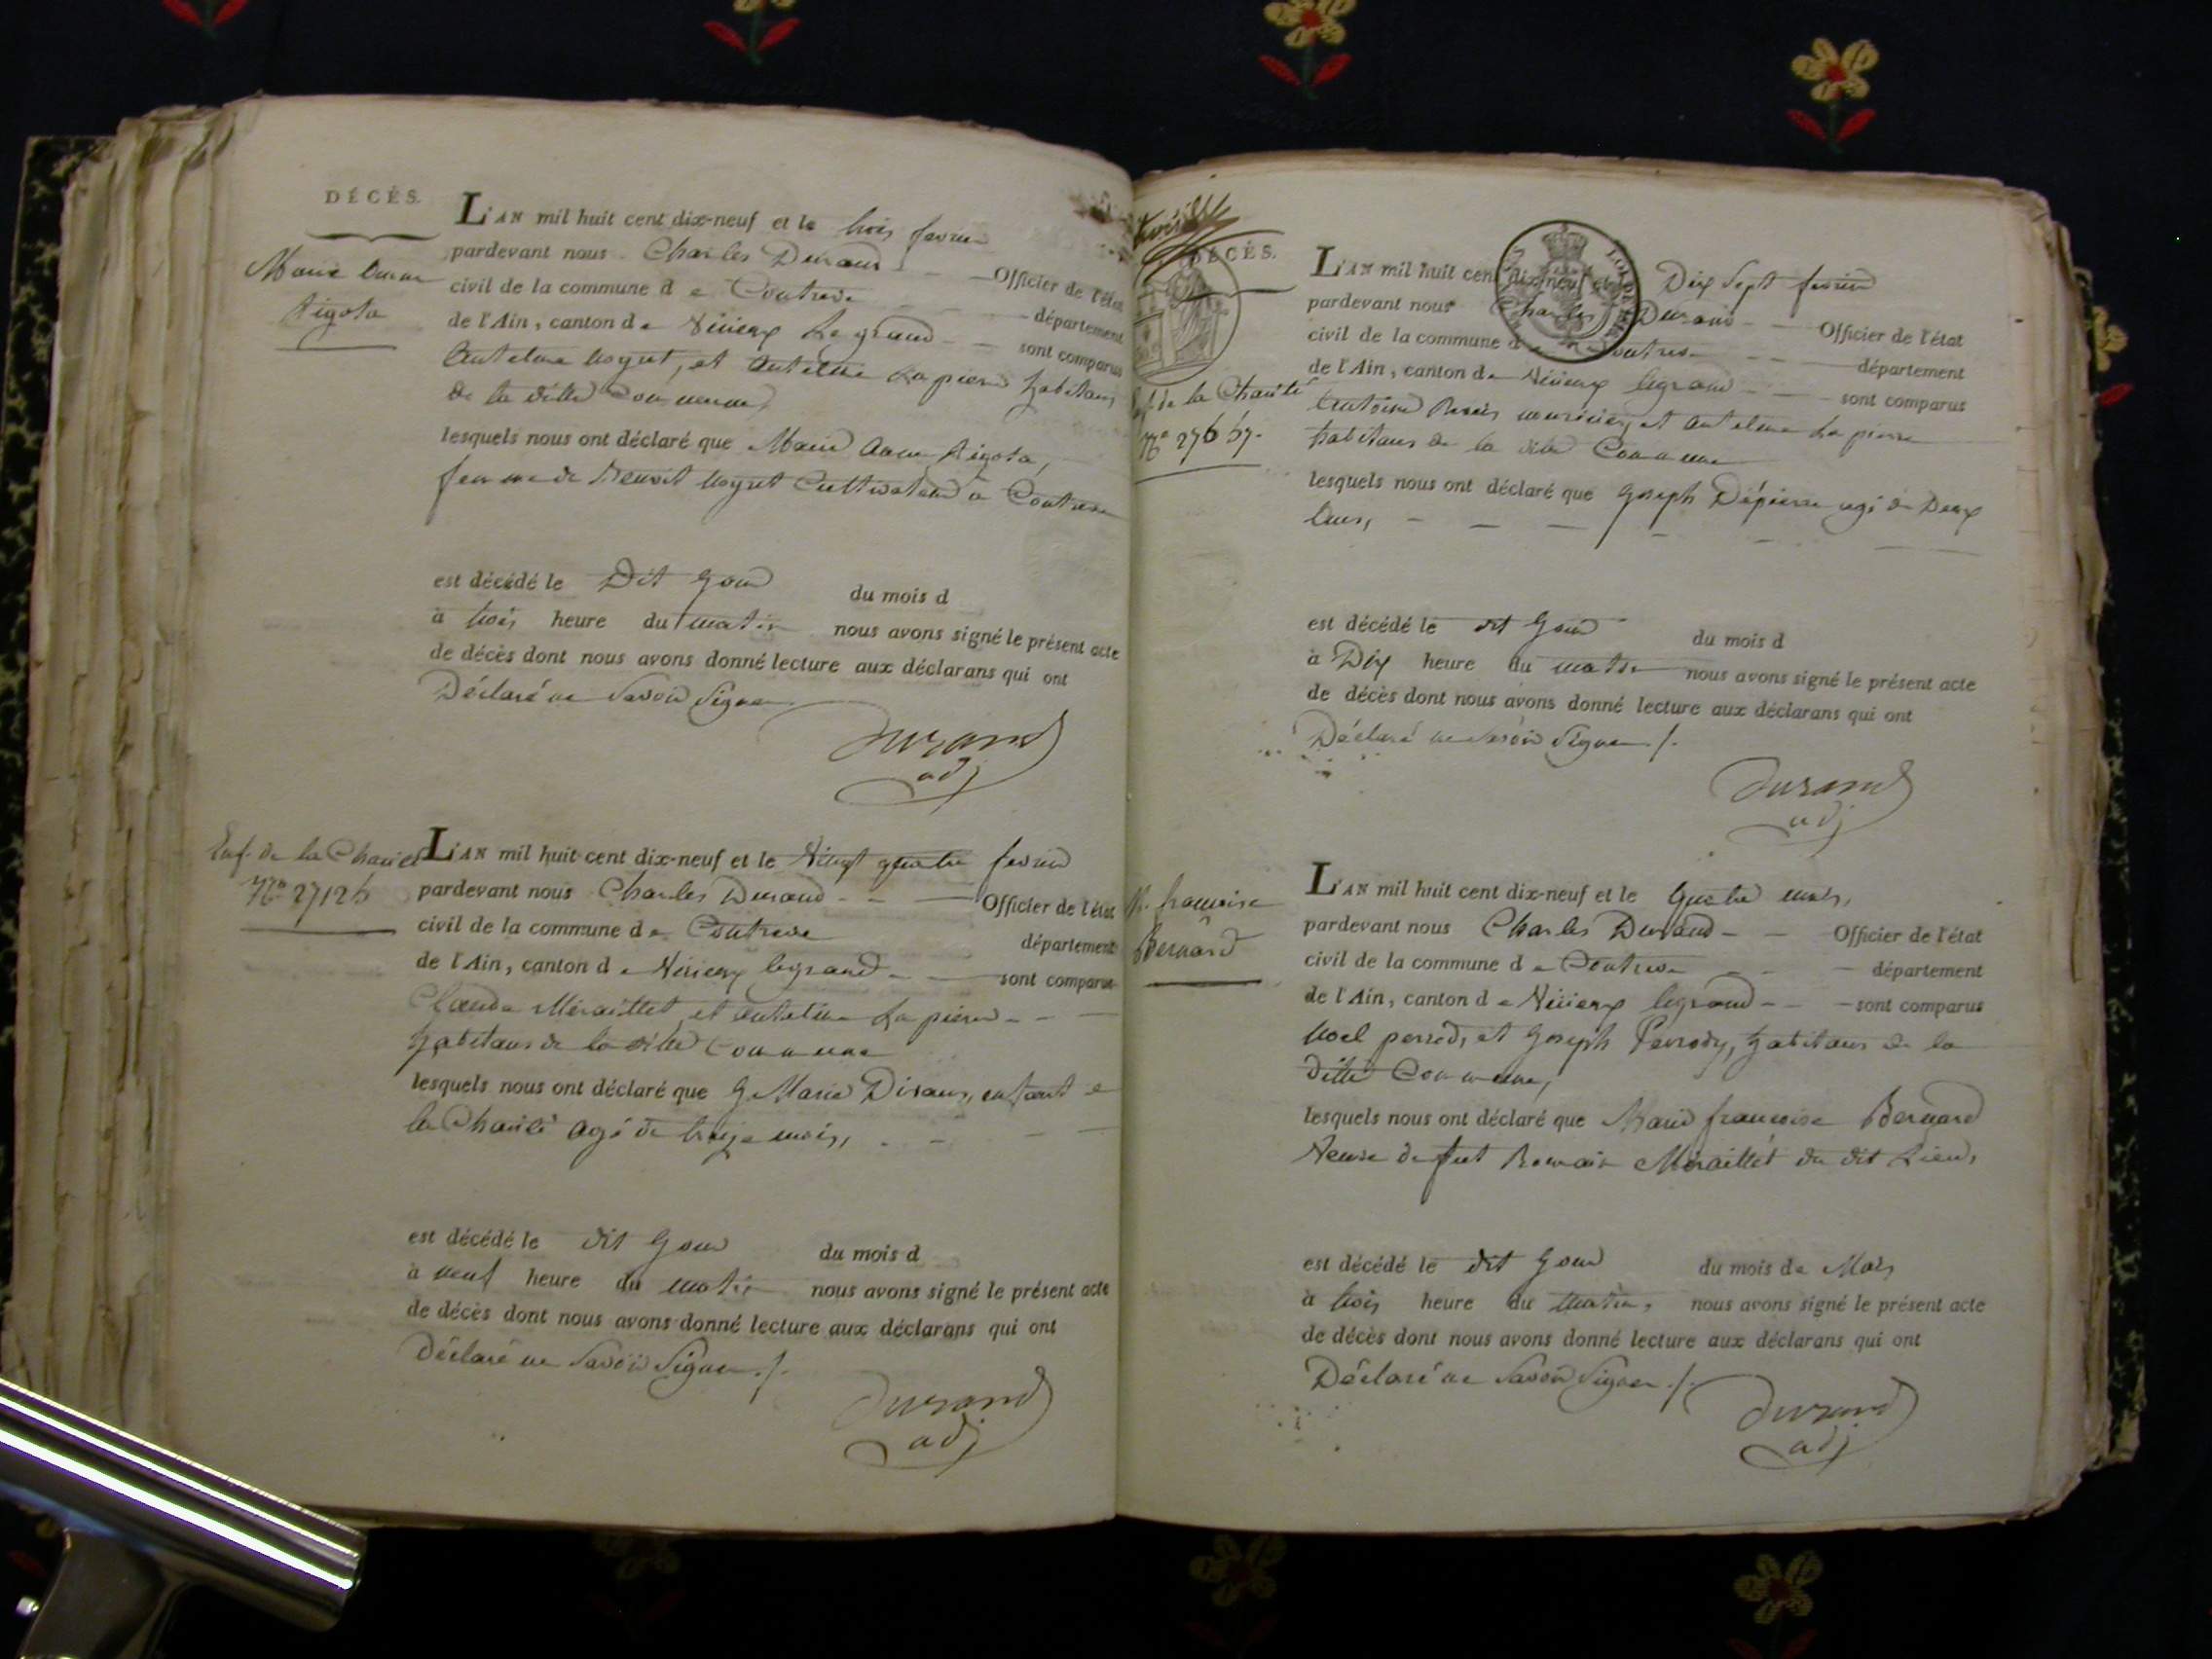 DÉCÈS.
Marie Anne
Rigota
L'AN mil huit cent dix-neuf et le trois fevrier
pardevant nous Charles Durand Officier de l'état
civil de la commune de Contrevo département
de l'Ain, canton de Virieux Le grand sont comparus
Antelme Moyret, et Antelme Lapierre habitans
de la ditte Commune
lesquels nous ont déclaré que Marie Anne Rigota,
femme de Benoit Moyret Cultivateur à Contrevo
est décédé le Dit Jour du mois d
à trois heure du matin nous avons signé le présent acte
de décès dont nous avons donné lecture aux déclarans qui ont
Déclaré ne Savoir Signer
Durand
adj
Enf. de la Charité
No 27125
L'AN mil huit cent dix-neuf et le Vingt quatre fevrier
pardevant nous Charles Durand Officier de l'état
civil de la commune de Contrevo département
de l'Ain, canton de Virieux legrand sont comparus
Claude Méraillet, et Antelme Lapierre
habitans de la ditte Commune
lesquels nous ont déclaré que J. Marie Disans, enfant de
la Charité agé de treize mois,
est décédé le dit Jour du mois d
à neuf heure du matin nous avons signé le présent acte
de décès dont nous avons donné lecture aux déclarans qui ont
Déclaré ne Savoir Signer ./.
Durand
adj
DÉCÈS.
Enf. de la Charité
No 27657.
L'AN mil huit cent dix-neuf et le Dix Sept fevrier
pardevant nous Charles Durand Officier de l'état
civil de la commune de Contrevo département
de l'Ain, canton de Virieux legrand sont comparus
Antoine meunier, et Antelme Lapierre
habitans de la ditte Commune
lesquels nous ont déclaré que Joseph Dépierre agé de Deux
Ans,
est décédé le dit Jour du mois d
à Dix heure du matin nous avons signé le présent acte
de décès dont nous avons donné lecture aux déclarans qui ont
Déclaré ne Savoir Signer ./.
Durand
adj
M. francoise
Bernard
L'AN mil huit cent dix-neuf et le quatre mars,
pardevant nous Charles Durand Officier de l'état
civil de la commune de Contrevo département
de l'Ain, canton de Virieux legrand sont comparus
Noel perrod, et Joseph Perrody, habitans de la
ditte Commune,
lesquels nous ont déclaré que Marie francoise Bernard
Veuve de fut Romain Méraillet du dit Lieu,
est décédé le dit Jour du mois de Mars
à trois heure du matin, nous avons signé le présent acte
de décès dont nous avons donné lecture aux déclarans qui ont
Déclaré ne Savoir Signer ./.
Durand
adj